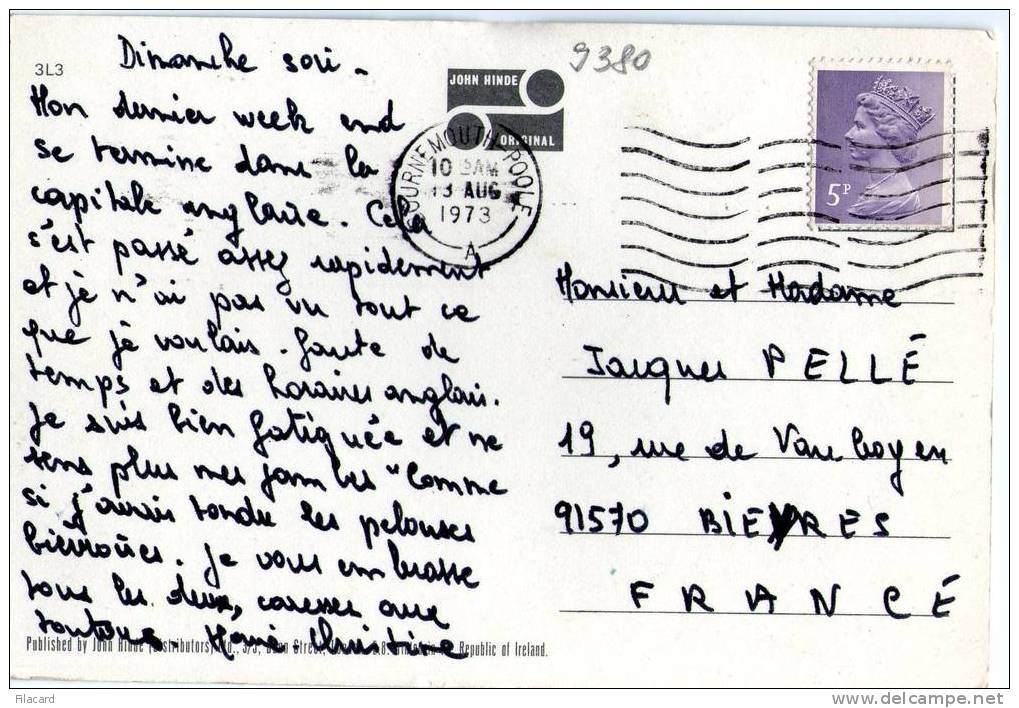 3L3
Dimanche soir -
Mon dernier week end
se termine dans la
capitale anglaise. Cela
s'est passé assez rapidement
et je n'ai pas vu tout ce
que je voulais. faute de
temps et des horaires anglais.
Je suis bien fatiguée et ne
sens plus mes jambes "comme
si j'avais tondu les pelouses
bièvroises. Je vous embrasse
tous les deux, caresses aux
toutous Marie-Christine
Published by John Hinde (Distributors) Ltd., 3/5, Street, Republic of Ireland.
9380
JOHN HINDE
ORIGINAL
BOURNEMOUTH-POOLE
10 AM
13 AUG
1973
A
5P
Monsieur et Madame
Jacques PELLÉ
19, rue de Vauboyen
91570 BIEVRES
FRANCÉ
Filacard
www.delcampe.net